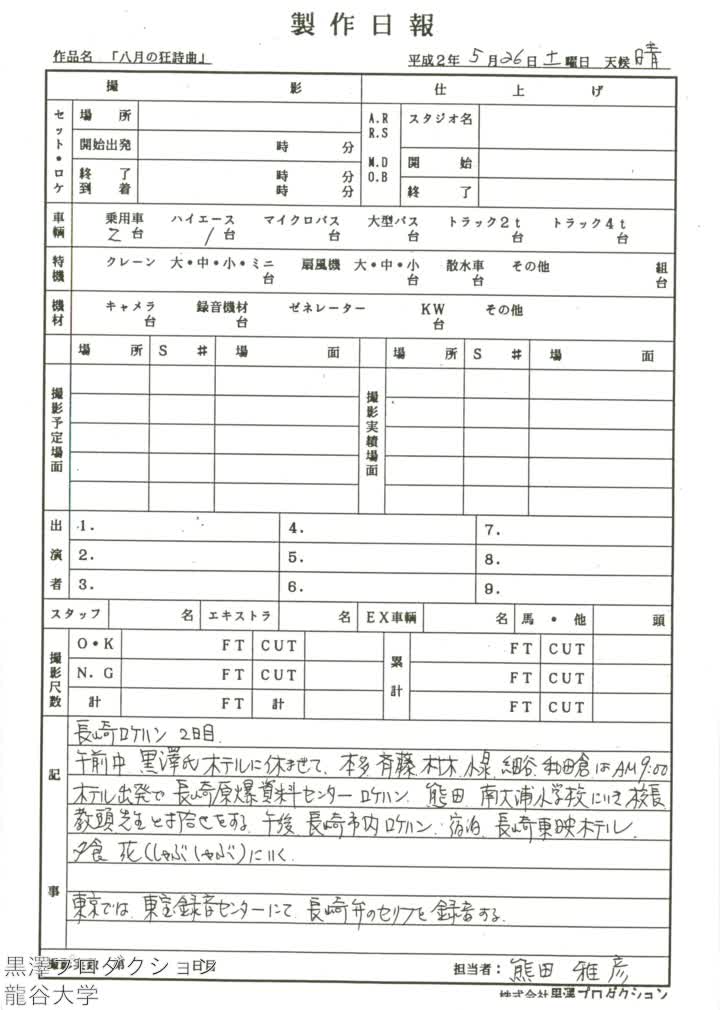 製作日報
作品名 「八月の狂詩曲」 平成2年 5月26日 土曜日 天候 晴
撮影 仕上げ
セット・ロケ 場所 A.R R.S スタジオ名
開始出発 時 分 M.D O.B 開始
終了 時 分 終了
到着 時 分
車輌 乗用車 ハイエース マイクロバス 大型バス トラック2t トラック4t
2台 1台 台 台 台 台
特機 クレーン 大・中・小・ミニ 扇風機 大・中・小 散水車 その他 組
台 台 台 台
機材 キャメラ 録音機材 ゼネレーター KW その他
台 台 台
場所 S# 場面 場所 S# 場面
撮影予定場面 撮影実績場面
出演者 1. 4. 7.
2. 5. 8.
3. 6. 9.
スタッフ 名 エキストラ 名 EX車輌 名 馬・他 頭
撮影尺数 O・K FT CUT 累計 FT CUT
N.G FT CUT FT CUT
計 FT 計 FT CUT
記事
長崎ロケハン 2日目.
午前中 黒澤氏 ホテルに休ませて、本多、斉藤、村木、水緑、細谷、和田倉はAM9:00
ホテル出発で 長崎原爆資料センター ロケハン. 熊田 南大浦小学校にいき校長
教頭先生と打合せをする. 午後、長崎市内ロケハン. 宿泊、長崎東映ホテル.
夕食 花(しゃぶしゃぶ)にいく.
東京では、東宝録音センターにて、長崎弁のセリフを録音する.
担当者: 熊田 雅彦
株式会社黒澤プロダクション
黒澤プロダクション
龍谷大学